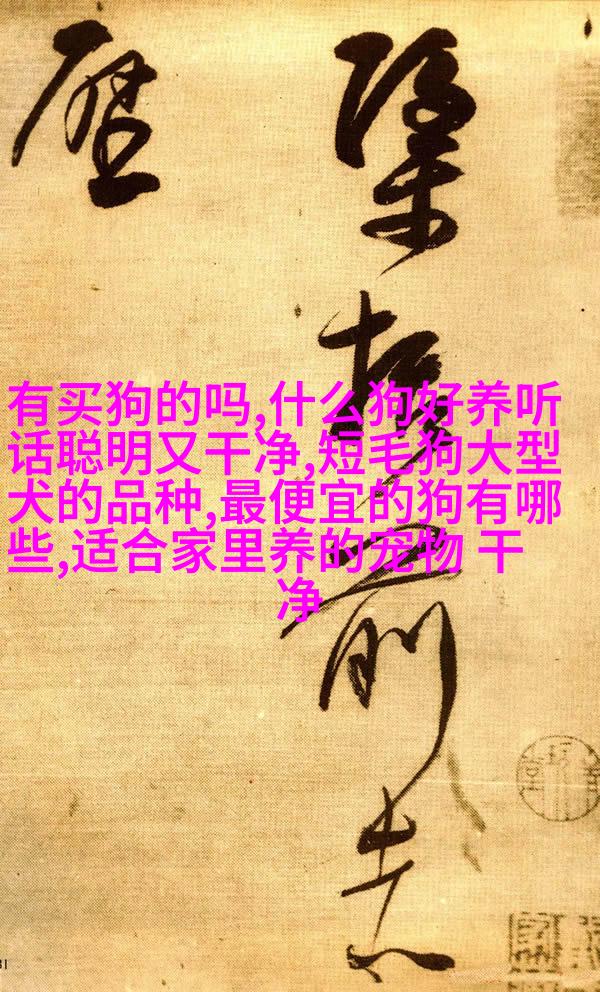 有买狗的吗,什么狗好养听
话聪明又干净,短毛狗大型
犬的品种,最便宜的狗有哪
些,适合家里养的宠物 干
净
前志